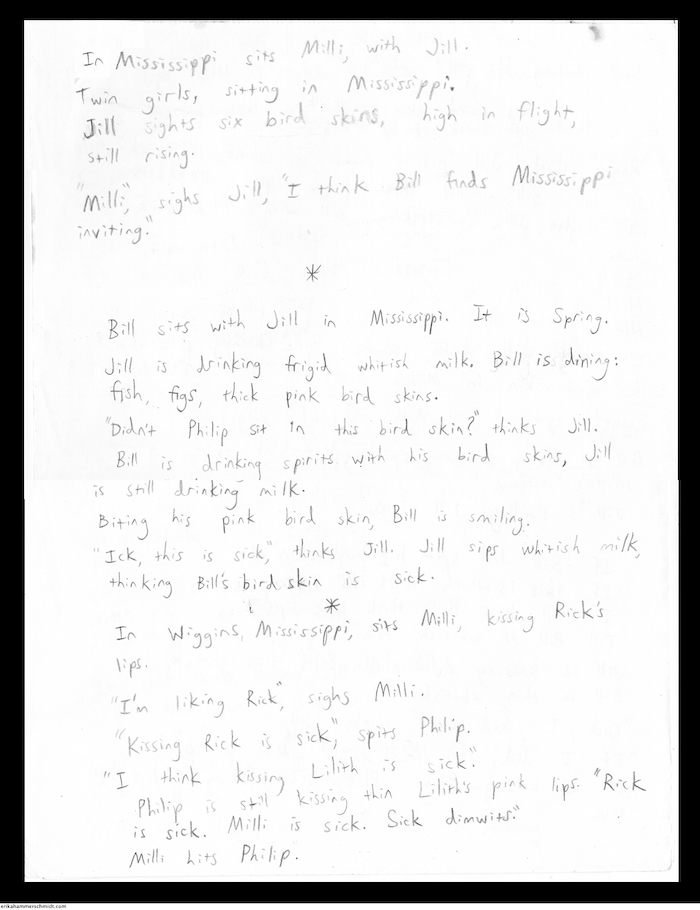 In Mississippi sits Milli, with Jill.
Twin girls, sitting in Mississippi.
Jill sights six bird skins, high in flight,
still rising.
"Milli," sighs Jill, "I think Bill finds Mississippi
inviting."
*
Bill sits with Jill in Mississippi. It is Spring.
Jill is drinking frigid whitish milk. Bill is dining:
fish, figs, thick pink bird skins.
"Didn't Philip sit in this bird skin?" thinks Jill.
Bill is drinking spirits with his bird skins, Jill
is still drinking milk.
Biting his pink bird skin, Bill is smiling.
"Ick, this is sick," thinks Jill. Jill sips whitish milk,
thinking Bill's bird skin is sick.
*
In Wiggins, Mississippi, sits Milli, kissing Rick's
lips.
"I'm liking Rick", sighs Milli.
"Kissing Rick is sick," spits Philip.
"I think kissing Lilith is sick."
Philip is still kissing thin Lilith's pink lips. "Rick
is sick. Milli is sick. Sick dimwits."
Milli hits Philip.
erikahammerschmidt.com